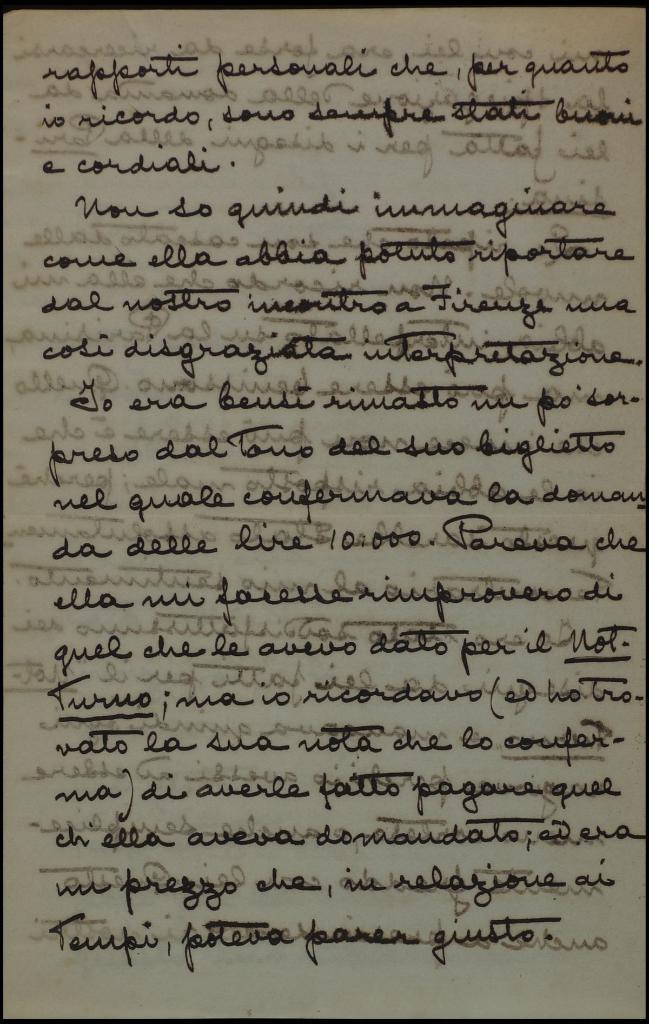 rapporti personali che, per quanto
io ricordo, sono sempre stati buoni
e cordiali.
Non so quindi immaginare
come ella abbia potuto riportare
dal nostro incontro a Firenze una
così disgraziata interpretazione.
Io era bensì rimasto un po' sor-
preso dal tono del suo biglietto
nel quale confermava la doman-
da delle lire 10.000. Pareva che
ella mi facesse rimprovero di
quel che le avevo dato per il Not-
turno; ma io ricordavo (ed ho tro-
vato la sua nota che lo confer-
ma) di averle fatto pagare quel
ch'ella aveva domandato; ed era
un prezzo che, in relazione ai
tempi, poteva parer giusto.